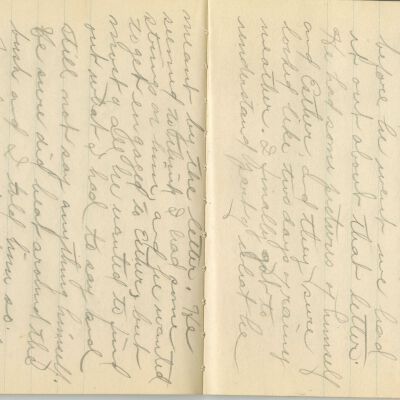 before he went we had
it out about that letter.
He had some pictures of himself
and Esther and they sure
looked like two days of rainy
weather. I finally got to
understand partly what he
meant by the letter. He
seemed to think I had some
strings on him and he wanted
to get engaged to Esther, but
he wanted to find
out what I had to say and
still not say anything himself.
He sure did beat around the
bush and I told him so.